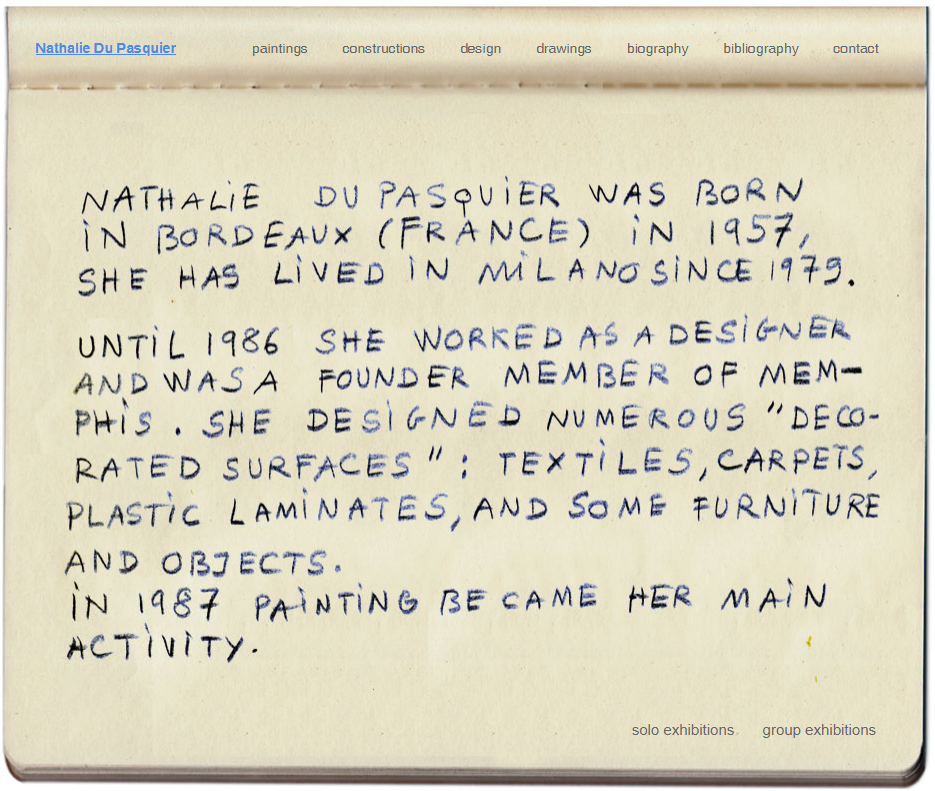 Nathalie Du Pasquier paintings constructions design drawings biography bibliography contact
NATHALIE DU PASQUIER WAS BORN
IN BORDEAUX (FRANCE) IN 1957,
SHE HAS LIVED IN MILANO SINCE 1979.
UNTIL 1986 SHE WORKED AS A DESIGNER
AND WAS A FOUNDER MEMBER OF MEM-
PHIS. SHE DESIGNED NUMEROUS "DECO-
RATED SURFACES": TEXTILES, CARPETS,
PLASTIC LAMINATES, AND SOME FURNITURE
AND OBJECTS.
IN 1987 PAINTING BECAME HER MAIN
ACTIVITY.
solo exhibitions group exhibitions